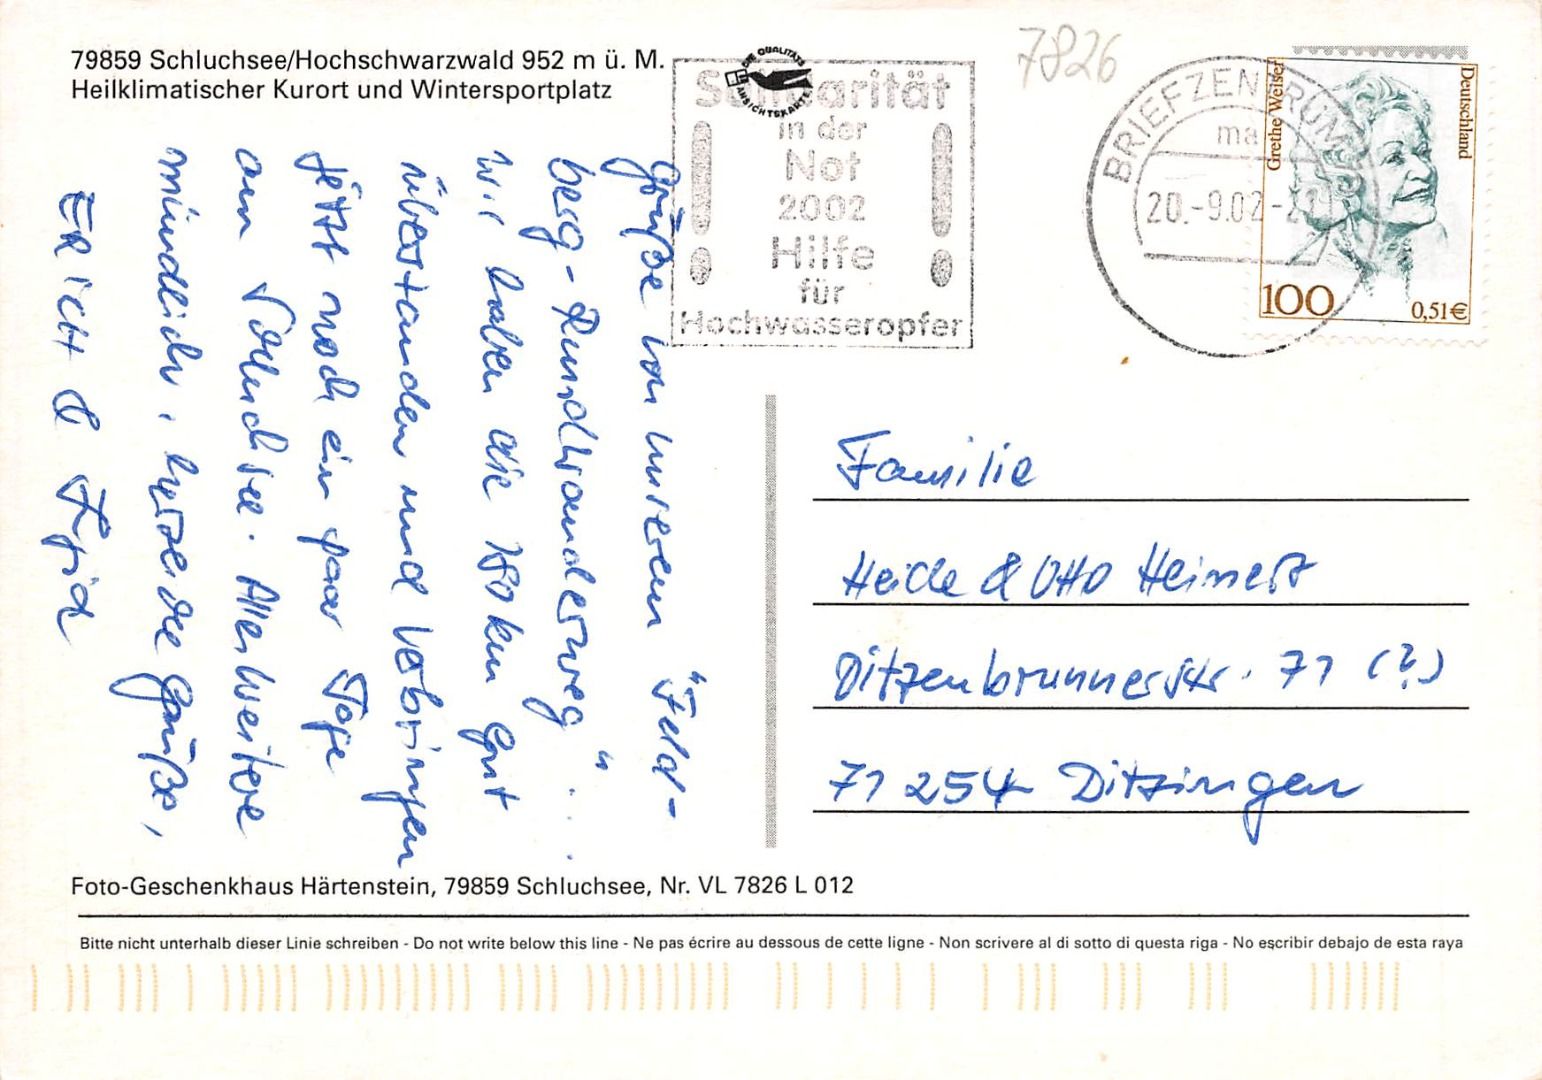 79859 Schluchsee/Hochschwarzwald 952 m ü. M.
Heilklimatischer Kurort und Wintersportplatz
DIE QUALITÄTS
ANSICHTSKARTE
Solidarität
in der
Not
2002
Hilfe
für
Hochwasseropfer
7826
BRIEFZENTRUM
20.-9.02-21
Grethe Weiser
Deutschland
100
0,51€
Grüße von unserem "Feld-
berg-Rundwanderweg" ...
Wir haben die 180 km gut
überstanden und verbringen
jetzt noch ein paar Tage
am Schluchsee. Alles weitere
mündlich, herzliche Grüße,
Erich & Frida
Familie
Heide & Otto Heimerl
Ditzenbrunnerstr. 71 (?)
71254 Ditzingen
Foto-Geschenkhaus Härtenstein, 79859 Schluchsee, Nr. VL 7826 L 012
Bitte nicht unterhalb dieser Linie schreiben - Do not write below this line - Ne pas écrire au dessous de cette ligne - Non scrivere al di sotto di questa riga - No escribir debajo de esta raya